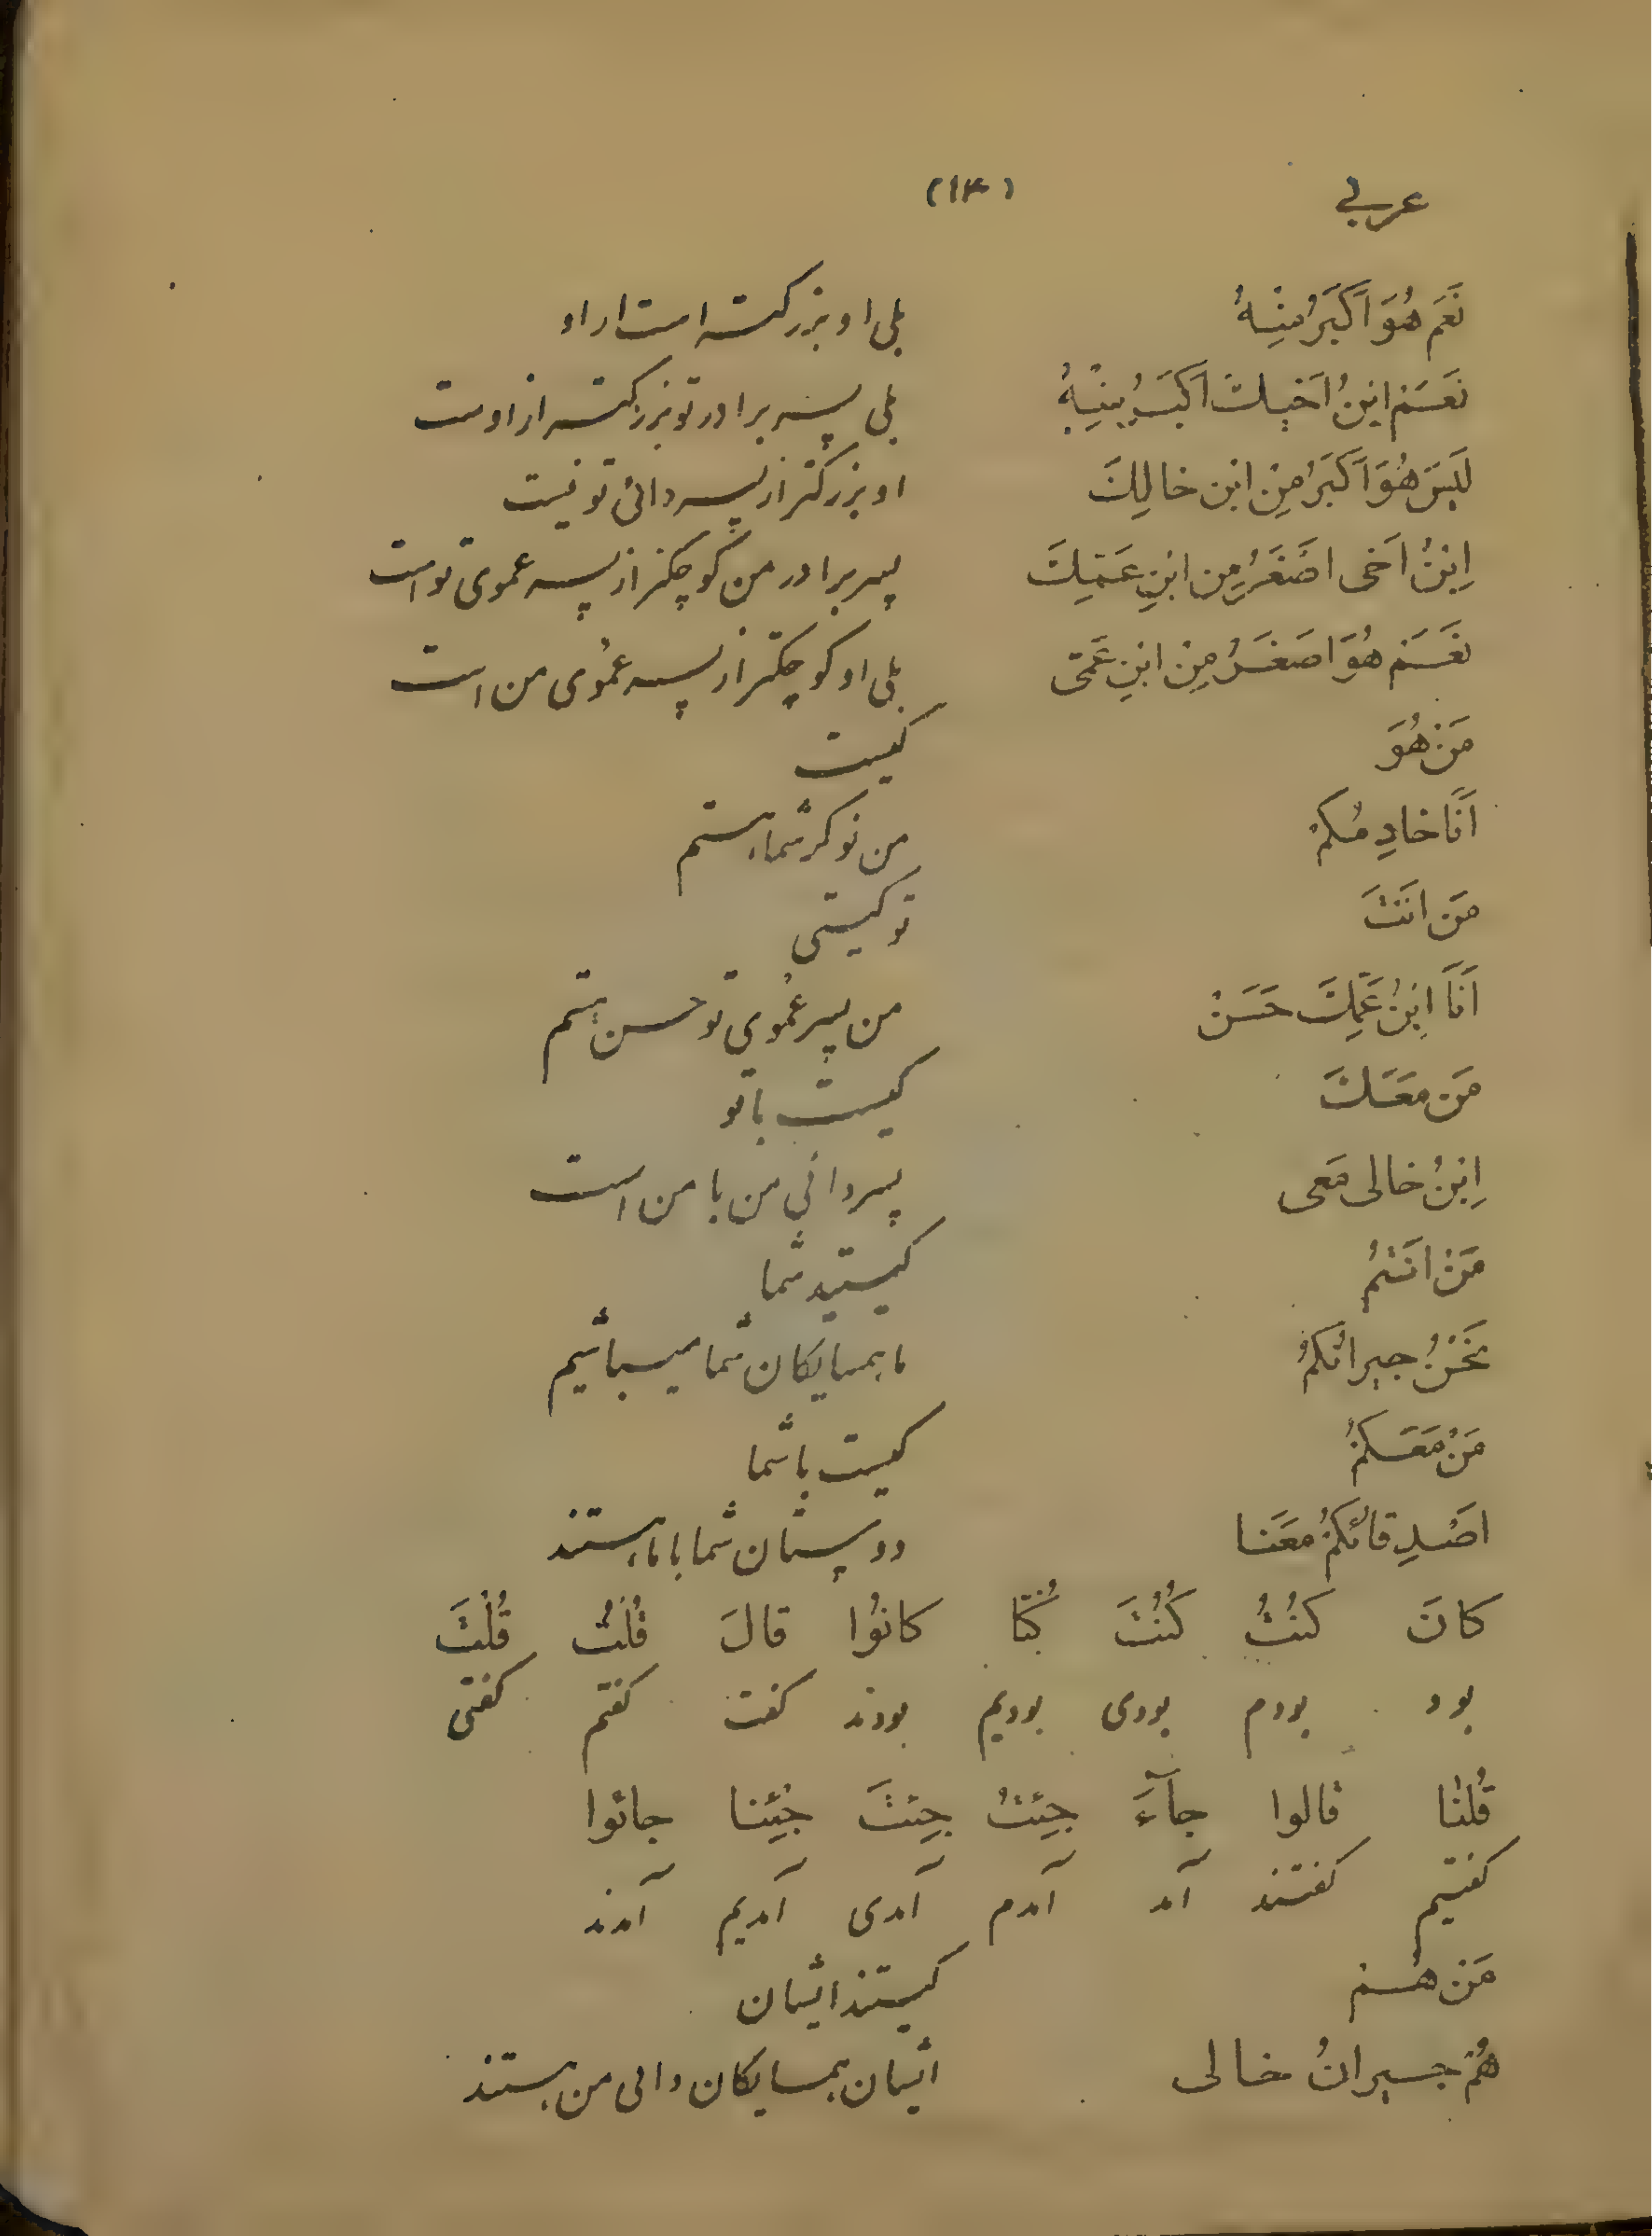 عربی (۱۴)
نَعَم هُوَ اَکبَرُ مِنهُ بلی او بزرکتر است از او
نَعَم ابنُ اَخیكَ اَکبَرُ مِنهُ بلی پسر برادر تو بزرکتر از اوست
لَیسَ هُوَ اَکبَرُ مِن ابن خالِكَ او بزرکتر از پسر دائی تو نیست
اِبنُ اَخی اصغَرُ مِن ابنِ عَمِّكَ پسر برادر من کوچکتر از پسر عموی تو است
نَعَم هُوَ اصغَرُ مِن ابنِ عَمّی بلی او کوچکتر از پسر عموی من است
مَن هُوَ کیست
اَنَا خادِمُکُم من نوکر شما هستم
مَن انتَ تو کیستی
اَنَا اِبنُ عَمِّكَ حَسَنٌ من پسر عموی تو حسن هستم
مَن مَعَكَ کیست با تو
اِبنُ خالی مَعی پسر دائی من با من است
مَن انتُم کیستید شما
نَحنُ جیرانُکُم ما همسایکان شما میباشیم
مَن مَعَکُم کیست با شما
اصدِقائُکُم مَعَنا دوستان شما با ما هستند
کانَ کنتُ کُنتَ کُنّا کانُوا قالَ قُلتُ قُلتَ
بود بودم بودی بودیم بودند کفت کفتم کفتی
قُلنا قالوا جآءَ جِئتُ جِئتَ جِئنا جائوا
کفتیم کفتند آمد آمدم آمدی آمدیم آمدند
مَن هُم کیستند ایشان
هُم جیرانُ خالی ایشان همسایکان دائی من هستند